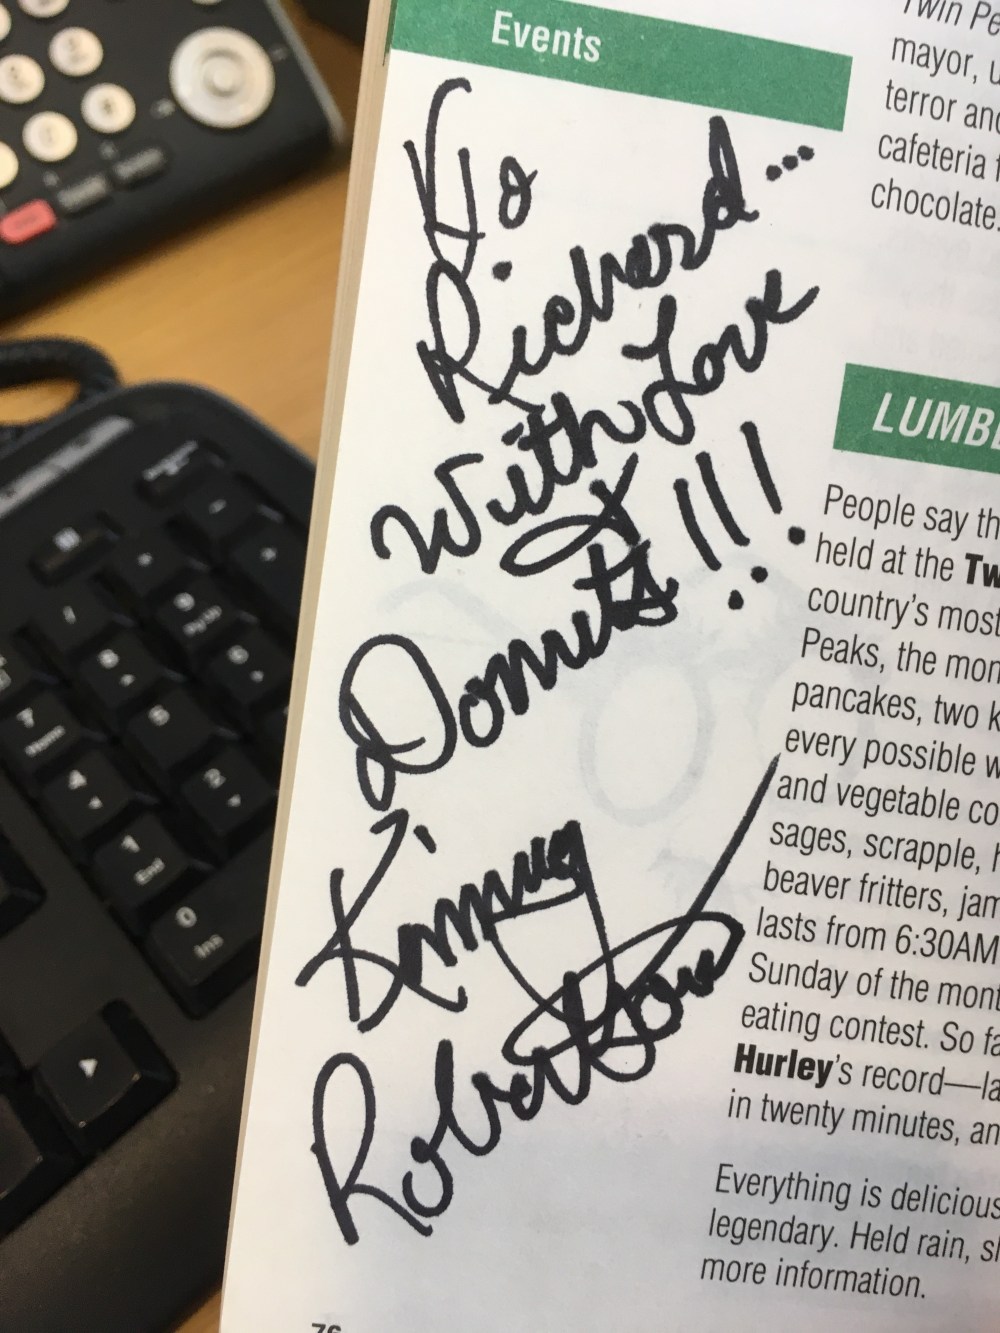 Events
To
Richard...
With Love
&
Donuts!!!
Kimmy
Robertson
Twin Pe
mayor, u
terror and
cafeteria f
chocolate.
LUMBE
People say th
held at the Tw
country's most
Peaks, the mon
pancakes, two k
every possible w
and vegetable co
sages, scrapple, h
beaver fritters, jam
lasts from 6:30AM
Sunday of the mont
eating contest. So fa
Hurley's record—la
in twenty minutes, an
Everything is delicious
legendary. Held rain, sh
more information.
76
9
7
Home
8
5
6
4
2
1
End
0
Ins